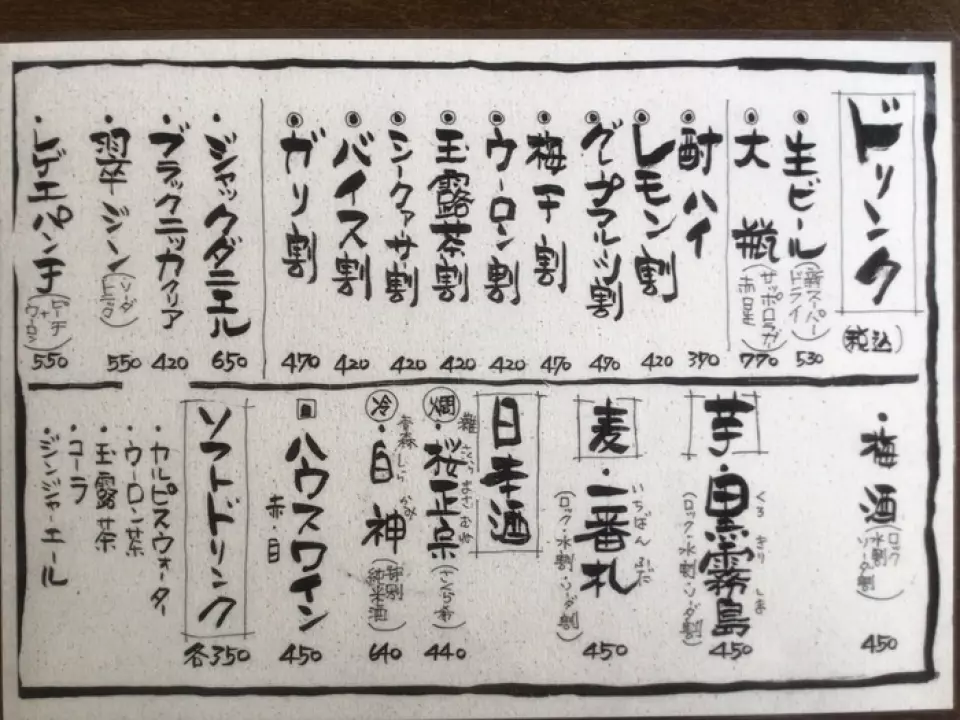 ドリンク
(税込)
生ビール
(スーパードライ)
530
大瓶
770
酎ハイ
370
レモン割
420
グレープフルーツ割
470
梅干割
470
ウーロン割
420
玉露茶割
420
シークァーサ割
420
バイス割
420
ガリ割
470
・ジャックダニエル
650
・ブラックニッカクリア
420
・翠ジン
550
・レゲエパンチ
(ピーチ+ウーロン)
550
・梅酒
(ロック・水割・ソーダ割)
450
芋
・黒霧島
くろ きり しま
(ロック・水割・ソーダ割)
450
麦
・一番札
いちばん ふだ
(ロック・水割・ソーダ割)
450
日本酒
燗
・桜正宗
さくら まさむね
440
冷
・白神
しら かみ
(純米酒)
640
ハウスワイン
赤・白
450
ソフトドリンク
各350
・カルピスウォーター
・ウーロン茶
・玉露茶
・コーラ
・ジンジャーエール